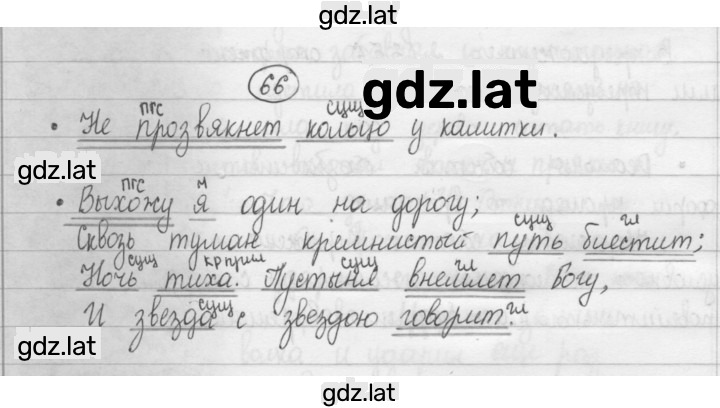 gdz.lat
66
gdz.lat
пгс сущ
• Не прозвякнет кольцо у калитки.
gdz.lat
пгс м
• Выхожу я один на дорогу;
сущ гл
Сквозь туман кремнистый путь блестит;
сущ кр.прил сущ гл
Ночь тиха. Пустыня внемлет богу,
сущ гл
И звезда с звездою говорит.
gdz.lat
gdz.lat
gdz.lat